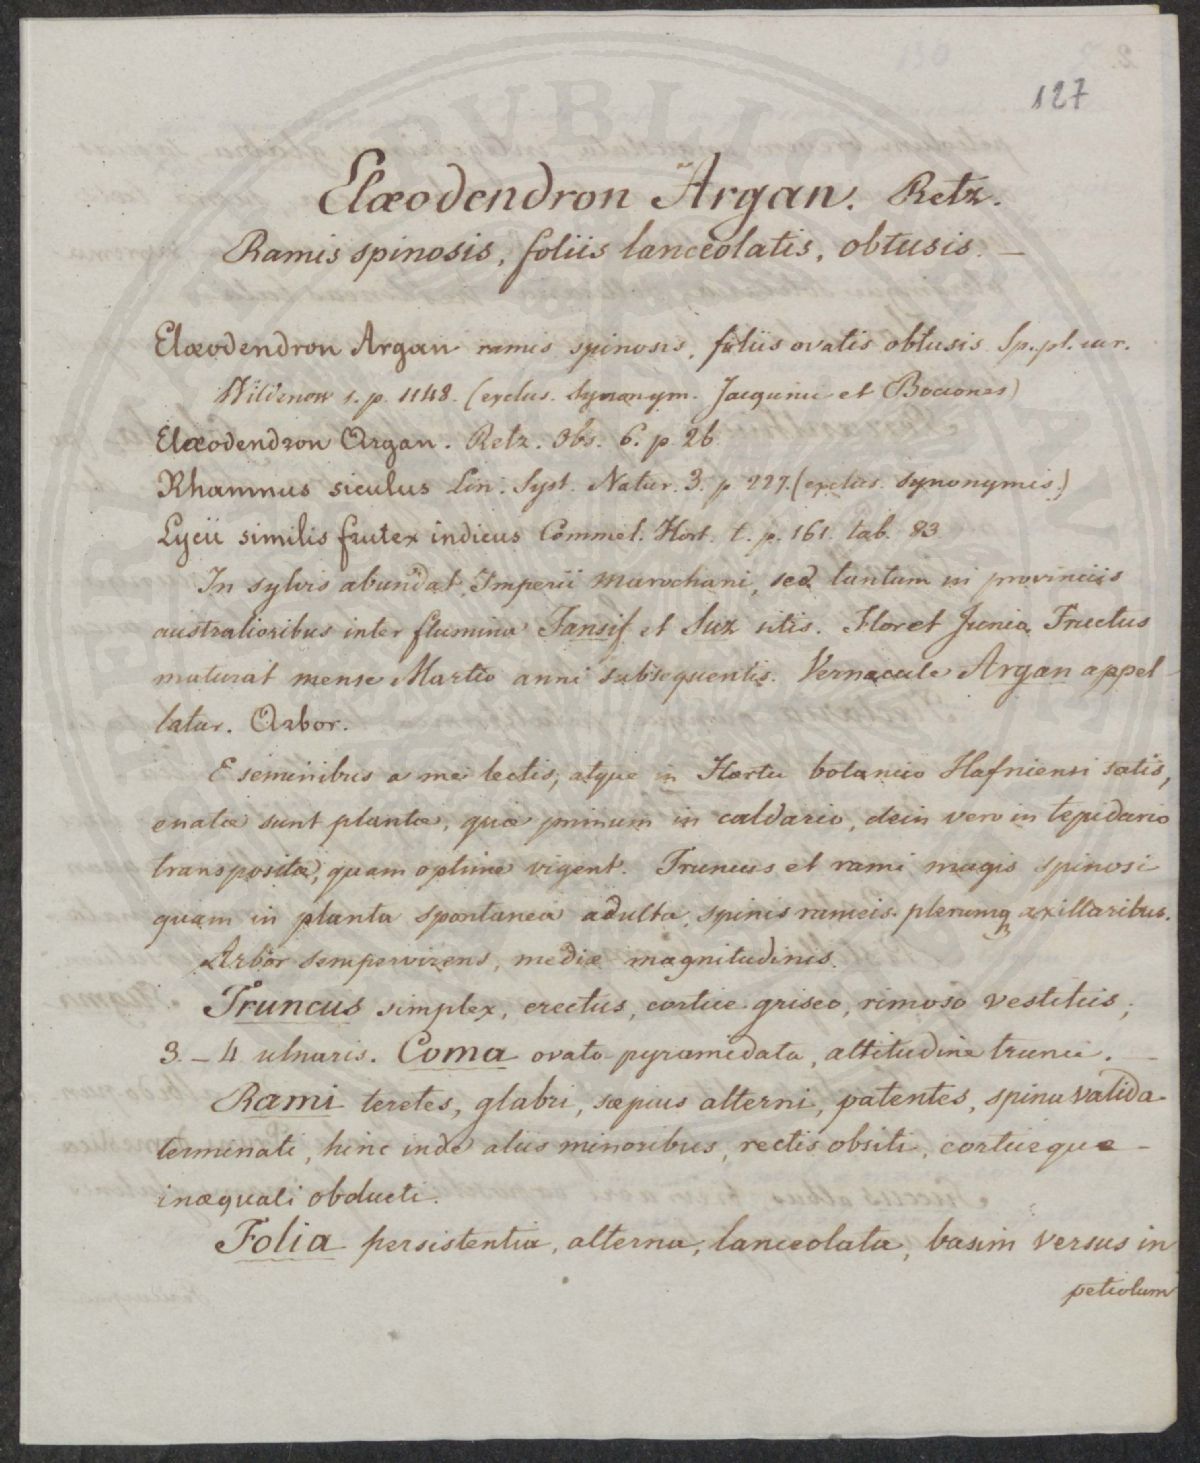 127
Elæodendron Argan. Retz.
Ramis spinosis, foliis lanceolatis, obtusis. —
Elæodendron Argan ramis spinosis, foliis ovatis obtusis Sp. pl. cur.
Wildenow 1. p. 1148. (exclus. Synonym. Jacquini et Boccones)
Elæodendron Argan. Retz. Obs. 6. p. 26
Rhamnus siculus Lin. Syst. Natur. 3. p 227. (exclus. synonymis.)
Lycii similis frutex indicus Commel. Hort. 1. p. 161. tab. 83
In sylvis abundat Imperii Marochani, sed tantum in provinciis
australioribus inter flumina Tansif et Suz sitis. Floret Junio. Fructus
maturat mense Martio anni subsequentis. Vernacule Argan appel
latur. Arbor.
E seminibus a me lectis, atque in Horto botanico Hafniensi satis,
enatæ sunt plantæ, quæ primum in caldario, dein vero in tepidario
transpositæ, quam optime vigent. Truncus et rami magis spinosi
quam in planta spontanea adulta, spinis rameis plerumq axillaribus.
Arbor sempervirens, mediæ magnitudinis.
Truncus simplex, erectus, cortice griseo, rimoso vestitus,
3 – 4 ulnaris. Coma ovato pyramidata, altitudine trunci. —
Rami teretes, glabri, sæpius alterni, patentes, spina valida
terminati, hinc inde aliis minoribus, rectis obsiti, corticeque —
inæquali obducti.
Folia persistentia, alterna, lanceolata, basim versus in
petiolum